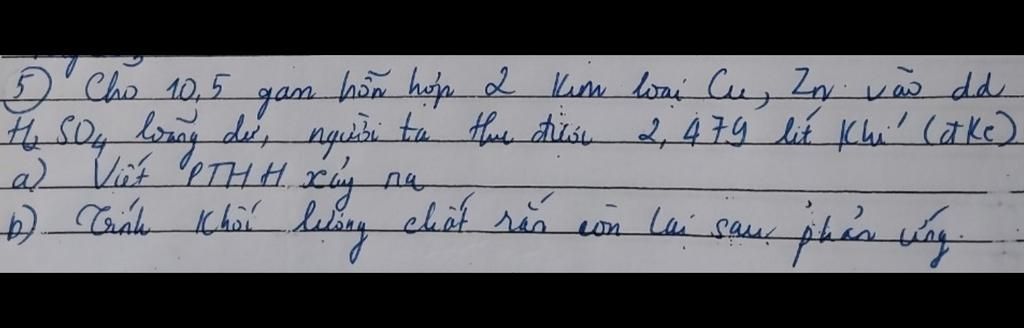 ⑤ Cho 10,5 gam hỗn hợp 2 kim loại Cu, Zn vào dd
H₂SO₄ loãng dư, người ta thu được 2,479 lít khí (đkc)
a) Viết PTHH xảy ra
b) Tính khối lượng chất rắn còn lại sau phản ứng.